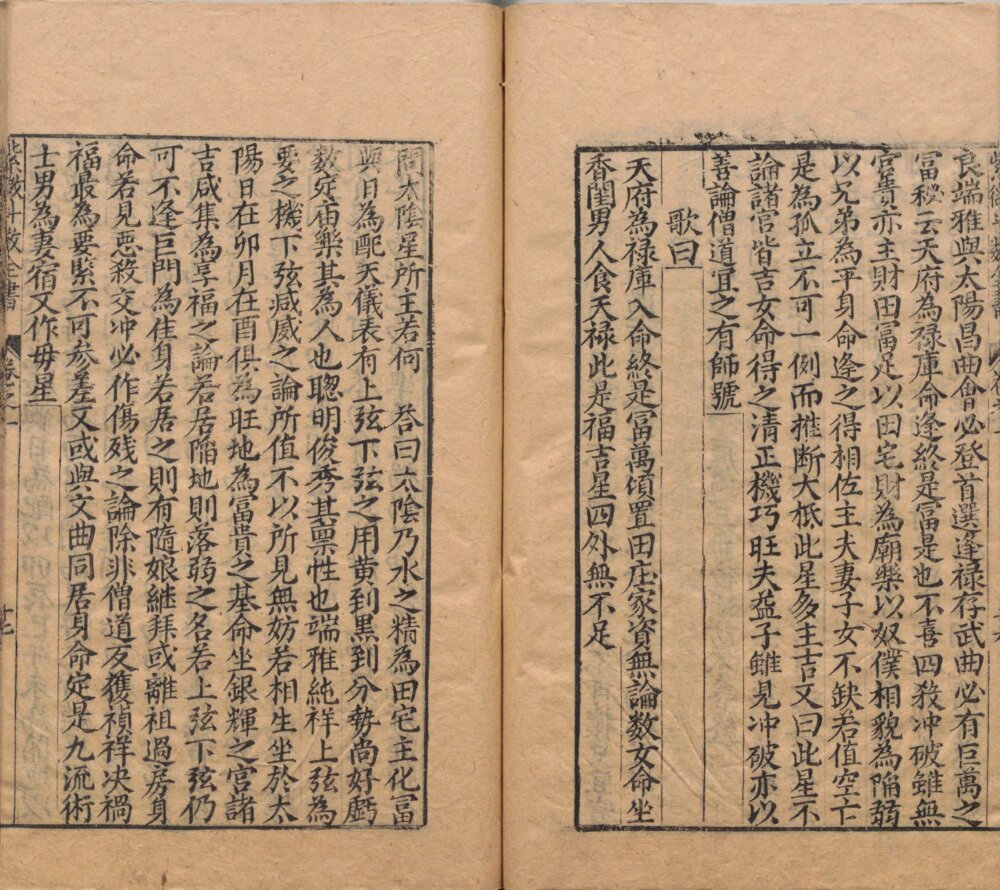 良端雅與太陽昌曲會必登首選逢禄存武曲必有巨萬之
富秘云天府為禄庫命逢終是富是也不喜四殺冲破雖無
官貴亦主財田富足以田宅財為廟樂以奴僕相貌為陥弱
以兄弟為平身命逢之得相佐主夫妻子女不缺若值空亡
是為孤立不可一例而推断大柢此星多主吉又曰此星不
論諸宫皆吉女命得之清正機巧旺夫益子雖見冲破亦以
善論僧道宜之有師號
歌曰
天府為禄庫入命終是富萬傾置田庄家資無論数女命坐
香閨男人食天禄此是福吉星四外無不足
問太陰星所主若何 答曰太陰乃水之精為田宅主化富
與日為配天儀表有上弦下弦之用黄到黒到分勢尚好虧
数定廟樂其為人也聦明俊秀其禀性也端雅純祥上弦為
要之機下弦减威之論所值不以所見無妨若相生坐於太
陽日在卯月在酉俱為旺地為富貴之基命坐銀輝之宫諸
吉咸集為享福之論若居陥地則落弱之名若上弦下弦仍
可不逢巨門為佳身若居之則有隨娘継拜或離祖過房身
命若見惡殺交冲必作傷残之論除非僧道反獲禎祥决禍
福最為要緊不可參差又或與文曲同居身命定是九流術
士男為妻宿又作毋星
紫微斗数全書 卷之一 十七